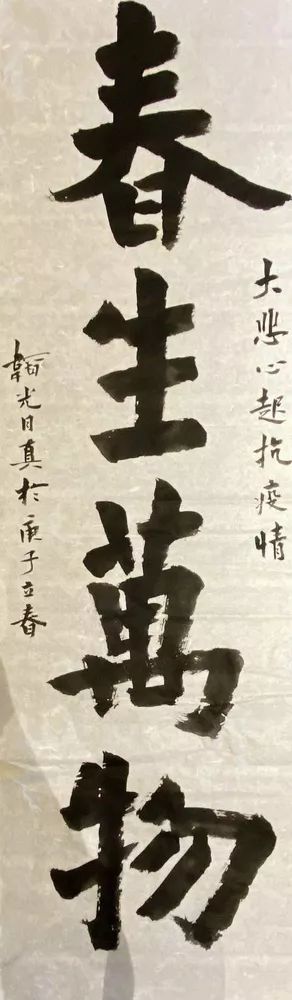 大悲心起抗疫情
春生萬物
尤日真於庚子立春